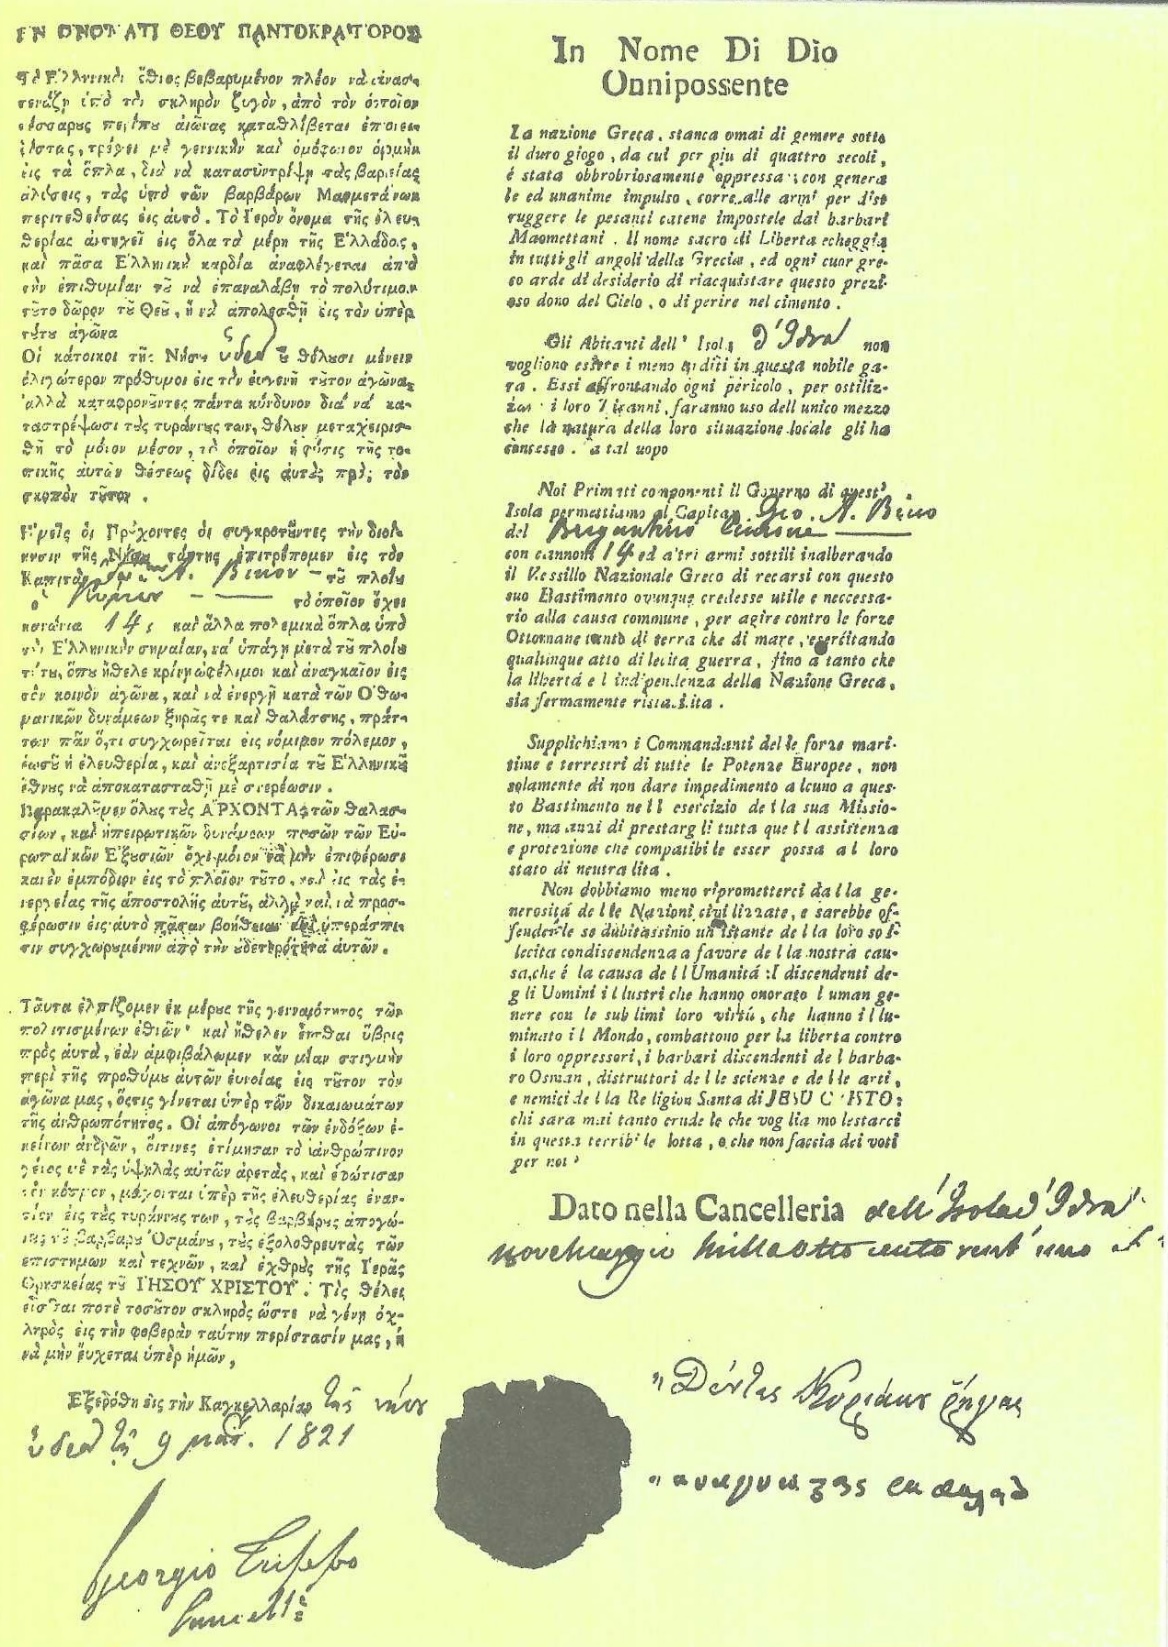 ΕΝ ΟΝΟΜΑΤΙ ΘΕΟΥ ΠΑΝΤΟΚΡΑΤΟΡΟΣ
Τὸ Ἑλληνικὸν ἔθνος βεβαρυμένον πλέον νὰ ἀνασ-
τενάζῃ ὑπὸ τὸν σκληρὸν ζυγὸν, ἀπὸ τὸν ὁποῖον
τέσσαρας περίπου αἰῶνας καταθλίβεται ἐπονει-
δίστως, τρέχει μὲ γενικὴν καὶ ὁμόφωνον ὁρμὴν
εἰς τὰ ὅπλα, διὰ νὰ κατασυντρίψῃ τὰς βαρείας
ἁλύσεις, τὰς ὑπὸ τῶν βαρβάρων Μαωμετάνων
περιτεθείσας εἰς αὐτό. Τὸ Ἱερὸν ὄνομα τῆς ἐλευ-
θερίας ἀντηχεῖ εἰς ὅλα τὰ μέρη τῆς Ἑλλάδος,
καὶ πᾶσα Ἑλληνικὴ καρδία ἀναφλέγεται ἀπὸ
τὴν ἐπιθυμίαν τοῦ νὰ ἐπαναλάβῃ τὸ πολύτιμον
τοῦτο δῶρον τοῦ Θεοῦ, ἢ νὰ ἀπολεσθῇ εἰς τὸν ὑπὲρ
τούτου ἀγῶνα
Οἱ κάτοικοι τῆς Νήσου ὕδρας οὐ θέλουσι μένειν
ὀλιγώτερον πρόθυμοι εἰς τὸν εὐγενῆ τοῦτον ἀγῶνα,
ἀλλὰ καταφρονοῦντες πάντα κίνδυνον διὰ νὰ κα-
ταστρέψωσι τοὺς τυράννους των, θέλουν μεταχειρισ-
θῆ τὸ μόνον μέσον, τὸ ὁποῖον ἡ φύσις τῆς το-
πικῆς αὐτῶν θέσεως δίδει εἰς αὐτοὺς πρὸς τὸν
σκοπὸν τοῦτον.
Ἡμεῖς οἱ Πρόχοντες οἱ συγκροτοῦντες τὴν διοί-
κησιν τῆς Νήσου ταύτης ἐπιτρέπομεν εἰς τὸν
Καπιτὰν Α. Βίκον τοῦ πλοίου
ὁ Κίμων τὸ ὁποῖον ἔχει
κανόνια 14, καὶ ἄλλα πολεμικὰ ὅπλα ὑπὸ
τὴν Ἑλληνικὴν σημαίαν, νὰ ὑπάγῃ μετὰ τοῦ πλοίου
τούτου, ὅπου ἤθελε κρίνῃ ὠφέλιμον καὶ ἀναγκαῖον εἰς
τὸν κοινὸν ἀγῶνα, καὶ νὰ ἐνεργῇ κατὰ τῶν Ὀθω-
μανικῶν δυνάμεων ξηρᾶς τε καὶ θαλάσσης, πράτ-
των πᾶν ὅ,τι συγχωρεῖται εἰς νόμιμον πόλεμον,
ἑωσοῦ ἡ ἐλευθερία, καὶ ἀνεξαρτισία τοῦ Ἑλληνικοῦ
ἔθνους νὰ ἀποκατασταθῇ μὲ στερέωσιν.
Παρακαλοῦμεν ὅλους τοὺς ΑΡΧΟΝΤΑΣ τῶν θαλασ-
σίων, καὶ ἠπειρωτικῶν δυνάμεων πασῶν τῶν Εὐ-
ρωπαϊκῶν Ἐξουσιῶν ὄχι μόνον νὰ μὴν ἐπιφέρωσι
κανὲν ἐμπόδιον εἰς τὸ πλοῖον τοῦτο, καὶ εἰς τὰς ἐ-
νεργείας τῆς ἀποστολῆς αὐτοῦ, ἀλλὰ καὶ νὰ προσ-
φέρωσιν εἰς αὐτὸ πᾶσαν βοήθειαν καὶ ὑπεράσπι-
σιν συγχωρουμένην ἀπὸ τὴν οὐδετερότητα αὐτῶν.
Ταῦτα ἐλπίζομεν ἐκ μέρους τῆς γενναιότητος τῶν
πολιτισμένων ἐθνῶν· καὶ ἤθελεν εἶσθαι ὕβρις
πρὸς αὐτὰ, ἐὰν ἀμφιβάλωμεν κἂν μίαν στιγμὴν
περὶ τῆς προθύμου αὐτῶν εὐνοίας εἰς τοῦτον τὸν
ἀγῶνα μας, ὅστις γίνεται ὑπὲρ τῶν δικαιωμάτων
τῆς ἀνθρωπότητος. Οἱ ἀπόγονοι τῶν ἐνδόξων ἐ-
κείνων ἀνδρῶν, οἵτινες ἐτίμησαν τὸ ἀνθρώπινον
γένος μὲ τὰς ὑψηλὰς αὐτῶν ἀρετὰς, καὶ ἐφώτισαν
τὸν κόσμον, μάχονται ὑπὲρ τῆς ἐλευθερίας ἐναν-
τίον εἰς τοὺς τυράννους των, τοὺς βαρβάρους ἀπογό-
νους τοῦ βαρβάρου Ὀσμάνου, τοὺς ἐξολοθρευτὰς τῶν
ἐπιστημων καὶ τεχνῶν, καὶ ἐχθροὺς τῆς Ἱερᾶς
Θρησκείας τοῦ ΙΗΣΟΥ ΧΡΙΣΤΟΥ. Τίς θέλει
εἶσθαι ποτὲ τοσοῦτον σκληρὸς ὥστε νὰ γένῃ ὀχ-
ληρὸς εἰς τὴν φοβερὰν ταύτην περίστασίν μας, ἢ
νὰ μὴν εὔχεται ὑπὲρ ἡμῶν,
Ἐξεδόθη εἰς τὴν Καγκελλαρίαν τῆς νήσου
ὕδρας τῇ 9 μαΐ. 1821
Georgio
In Nome Di Dio
Onnipossente
La nazione Greca, stanca omai di gemere sotto
il duro giogo, da cui per piu di quattro secoli,
é stata obbrobriosamente oppressa; con genera
le ed unanime impulso, corre alle armi per dist
ruggere le pesanti catene impostele dai barbari
Maomettani. Il nome sacro di Liberta echeggia
in tutti gli angoli della Grecia, ed ogni cuor gre-
co arde di desiderio di riacquistare questo prezi-
oso dono del Cielo, o di perire nel cimento.
Gli Abitanti dell' Isola d'Idra non
vogliono essere i meno arditi in questa nobile ga-
ra. Essi affrontando ogni pericolo, per ostiliz-
zar i loro Tiranni, faranno uso dell unico mezzo
che la natura della loro situazione locale gli ha
concesso. a tal uopo
Noi Primati componenti il Governo di quest'
Isola permettiamo al Capitan Gio. A. Bicco
del Brigantino Cimone
con cannoni 14 ed altri armi sottili inalberando
il Vessillo Nazionale Greco di recarsi con questo
suo Bastimento ovunque credesse utile e neccessa-
rio alla causa commune, per agire contro le forze
Ottomane tanto di terra che di mare, esercitando
qualunque atto di lecita guerra, fino a tanto che
la libertá e l indipendenza della Nazione Greca,
sia fermamente ristabilita.
Supplichiamo i Commandanti delle forze mari-
time e terrestri di tutte le Potenze Europee, non
solamente di non dare impedimento alcuno a ques-
to Bastimento nell esercizio della sua Missio-
ne, ma anzi di prestargli tutta quell assistenza
e protezione che compatibile esser possa al loro
stato di neutralita.
Non dobbiamo meno riprometterci dalla ge-
nerositá delle Nazioni civilizzate, e sarebbe of-
fenderle se dubitassinio un istante della loro sol-
lecita condiscendenza a favore della nostra cau-
sa, che é la causa dell Umanitá: I discendenti de-
gli Uomini illustri che hanno onorato l uman ge-
nere con le sublimi loro virtú, che hanno illu-
minato il Mondo, combattono per la liberta contro
i loro oppressori, i barbari discendenti del barba-
ro Osman, distruttori delle scienze e delle arti,
e nemici della Religion Santa di JESU CRISTO:
chi sara mai tanto crudele che voglia molestarci
in questa terribile lotta, o che non faccia dei voti
per noi?
Dato nella Cancelleria dell'Isola d'Idra
nove Maggio mille otto cento vent'uno